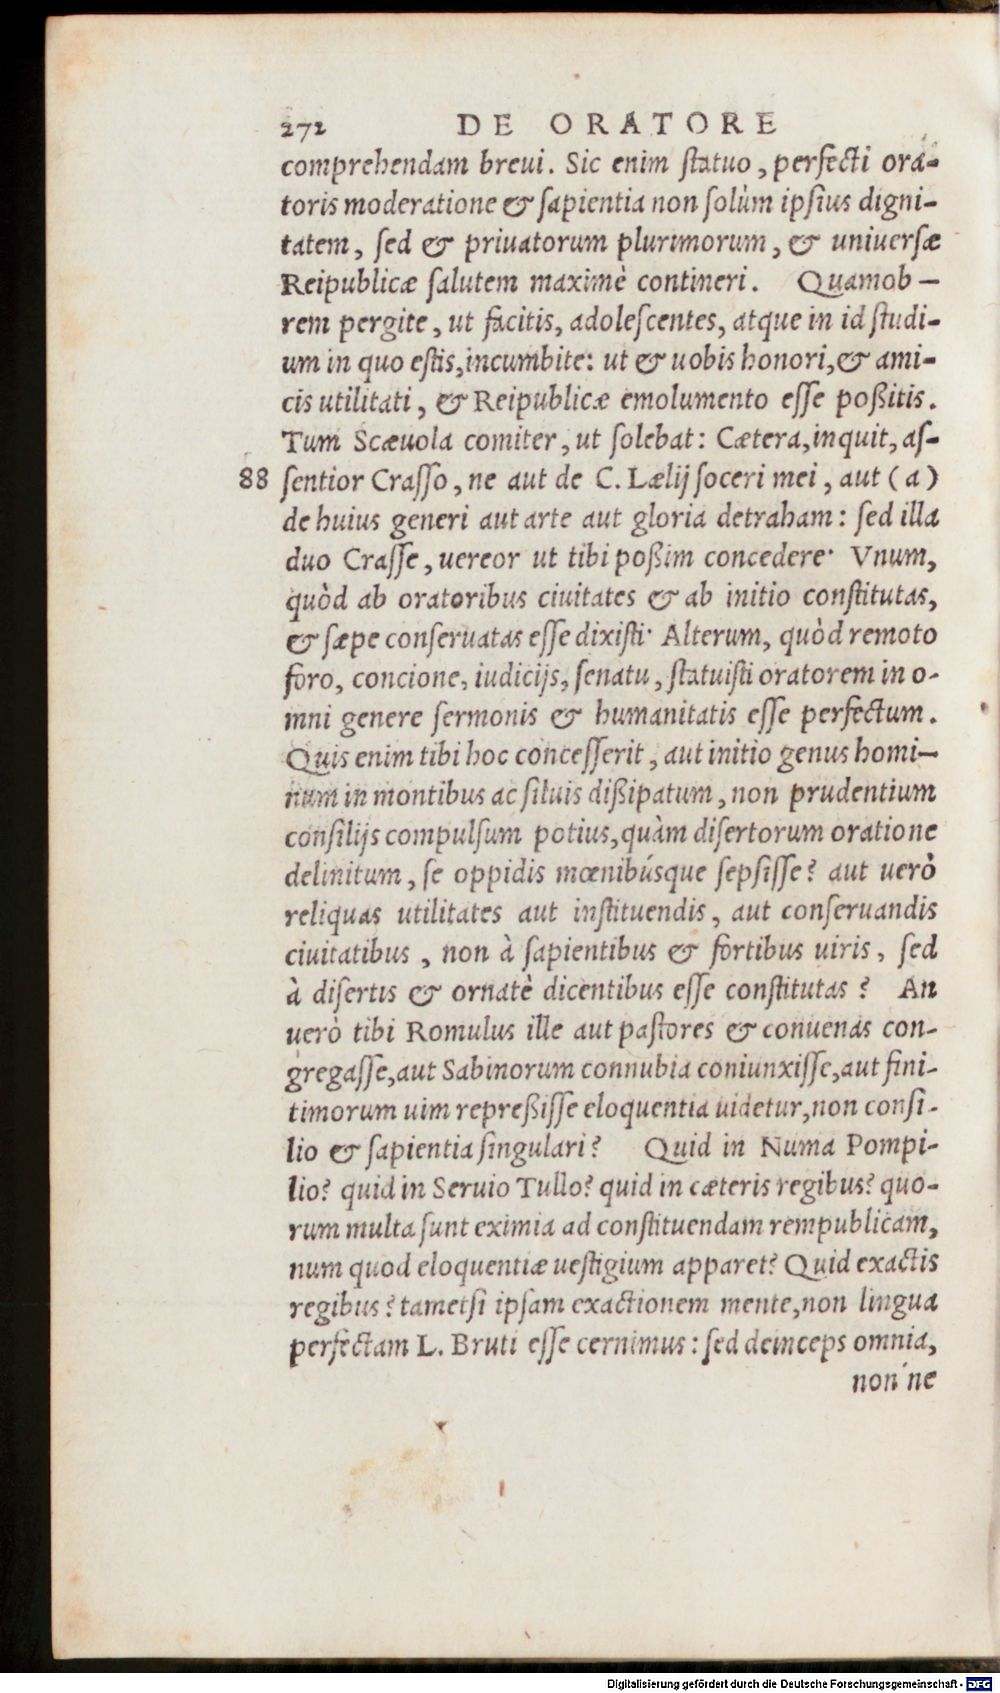 272 DE ORATORE
comprehendam breui. Sic enim statuo, perfecti ora-
toris moderatione & sapientia non solùm ipsius digni-
tatem, sed & priuatorum plurimorum, & uniuersæ
Reipublicæ salutem maximè contineri. Quamob-
rem pergite, ut facitis, adolescentes, atque in id studi-
um in quo estis, incumbite: ut & uobis honori, & ami-
cis utilitati, & Reipublicæ emolumento esse poßitis.
Tum Scæuola comiter, ut solebat: Cætera, inquit, as-
88 sentior Crasso, ne aut de C. Lælij soceri mei, aut (a)
de huius generi aut arte aut gloria detraham: sed illa
duo Crasse, uereor ut tibi poßim concedere· Vnum,
quòd ab oratoribus ciuitates & ab initio constitutas,
& sæpe conseruatas esse dixisti· Alterum, quòd remoto
foro, concione, iudicijs, senatu, statuisti oratorem in o-
mni genere sermonis & humanitatis esse perfectum.
Quis enim tibi hoc concesserit, aut initio genus homi-
num in montibus ac siluis dißipatum, non prudentium
consilijs compulsum potius, quàm disertorum oratione
delinitum, se oppidis mœnibúsque sepsisse? aut uerò
reliquas utilitates aut instituendis, aut conseruandis
ciuitatibus, non à sapientibus & fortibus uiris, sed
à disertis & ornatè dicentibus esse constitutas? An
uerò tibi Romulus ille aut pastores & conuenas con-
gregasse, aut Sabinorum connubia coniunxisse, aut fini-
timorum uim repreßisse eloquentia uidetur, non consi-
lio & sapientia singulari? Quid in Numa Pompi-
lio? quid in Seruio Tullo? quid in cæteris regibus? quo-
rum multa sunt eximia ad constituendam rempublicam,
num quod eloquentiæ uestigium apparet? Quid exactis
regibus? tametsi ipsam exactionem mente, non lingua
perfectam L. Bruti esse cernimus: sed deinceps omnia,
non'ne
Digitalisierung gefördert durch die Deutsche Forschungsgemeinschaft - DFG